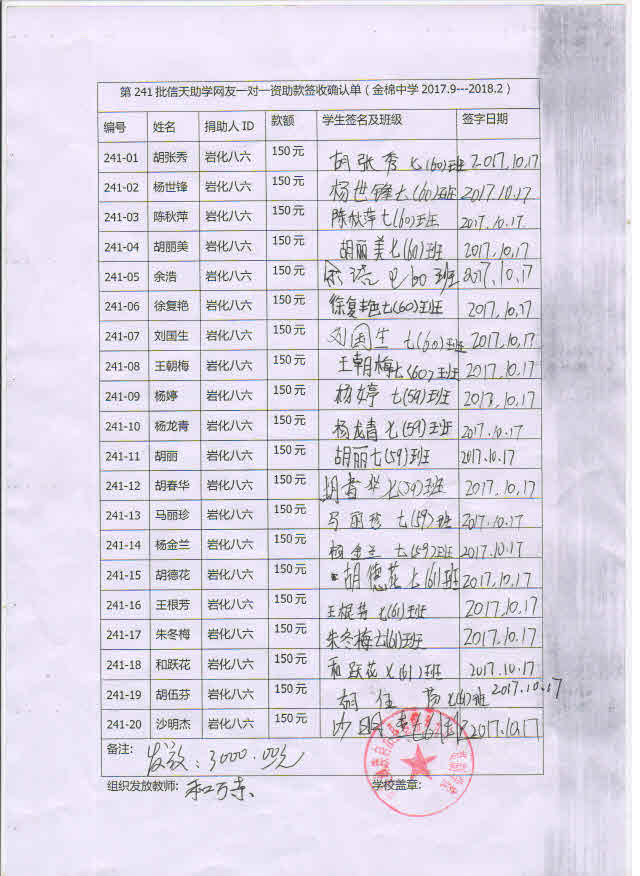 第 241 批信天助学网友一对一资助款签收确认单（金棉中学 2017.9---2018.2）
编号 姓名 捐助人 ID 款额 学生签名及班级 签字日期
241-01 胡张秀 岩化八六 150 元 胡张秀 七(60)班 2017.10.17
241-02 杨世锋 岩化八六 150 元 杨世锋七(60)班 2017.10.17
241-03 陈秋萍 岩化八六 150 元 陈秋萍七(60)班 2017.10.17
241-04 胡丽美 岩化八六 150 元 胡丽美七(60)班 2017.10.17
241-05 余浩 岩化八六 150 元 余浩 60班 2017.10.17
241-06 徐复艳 岩化八六 150 元 徐复艳七(60)班 2017.10.17
241-07 刘国生 岩化八六 150 元 刘国生 七(60)班 2017.10.17
241-08 王朝梅 岩化八六 150 元 王朝梅七(60)班 2017.10.17
241-09 杨婷 岩化八六 150 元 杨婷 七(59)班 2017.10.17
241-10 杨龙青 岩化八六 150 元 杨龙青七(59)班 2017.10.17
241-11 胡丽 岩化八六 150 元 胡丽七(59)班 2017.10.17
241-12 胡春华 岩化八六 150 元 胡春华七(59)班 2017.10.17
241-13 马丽珍 岩化八六 150 元 马丽珍 七(59)班 2017.10.17
241-14 杨金兰 岩化八六 150 元 杨金兰 七(59)班 2017.10.17
241-15 胡德花 岩化八六 150 元 胡德花七(61)班 2017.10.17
241-16 王根芳 岩化八六 150 元 王根芳 七(61)班 2017.10.17
241-17 朱冬梅 岩化八六 150 元 朱冬梅七(61)班 2017.10.17
241-18 和跃花 岩化八六 150 元 和跃花 七(61)班 2017.10.17
241-19 胡伍芬 岩化八六 150 元 胡伍芬七(61)班 2017.10.17
241-20 沙明杰 岩化八六 150 元 沙明杰 2017.10.17
备注： 发放：3000.00元
组织发放教师： 和万 学校盖章：